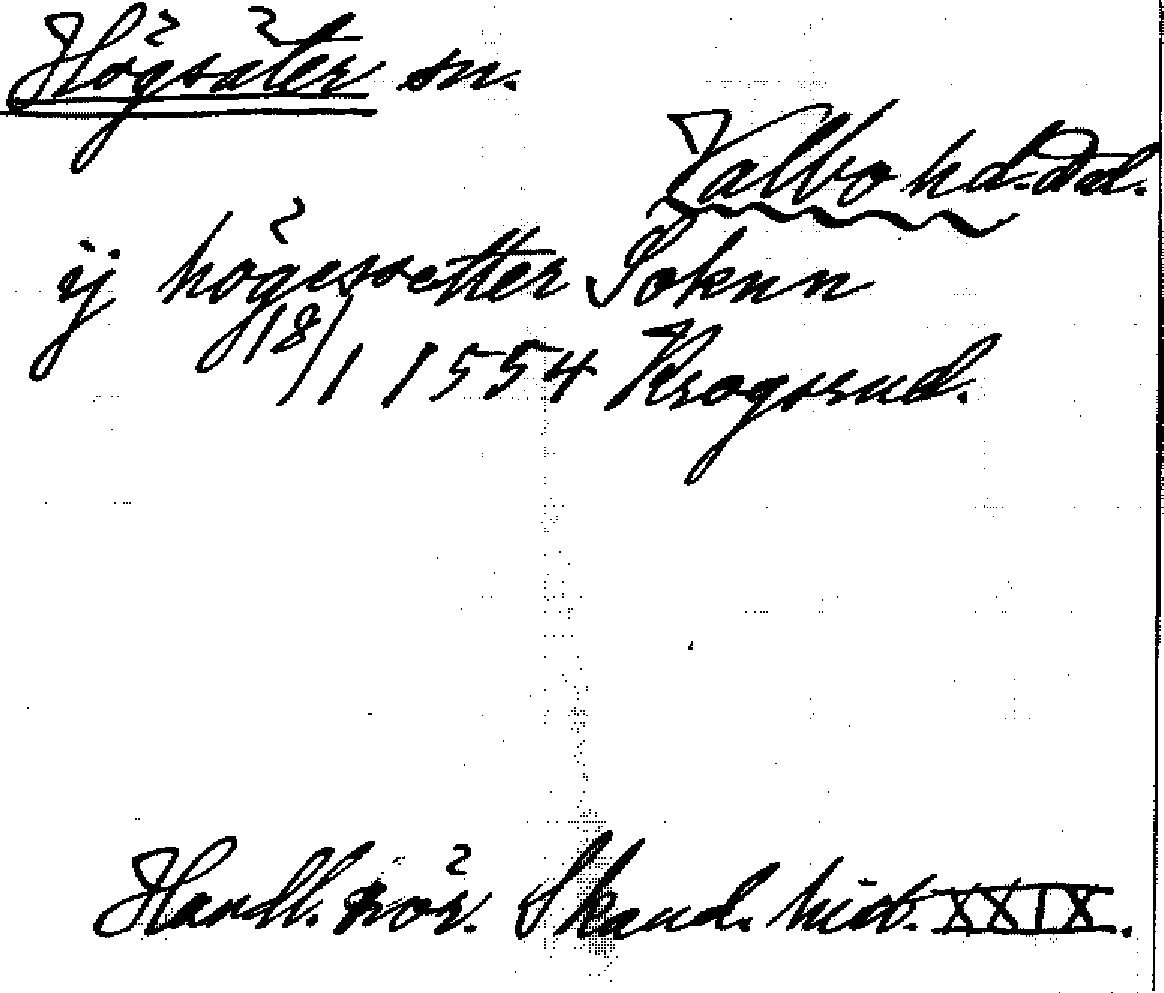 Högsäter sn.
Valbo hd. Dal.
ij högessetter Soknn
18/1 1554 Krogsrud.
Handl. rör. Skand. hist. XXIX.